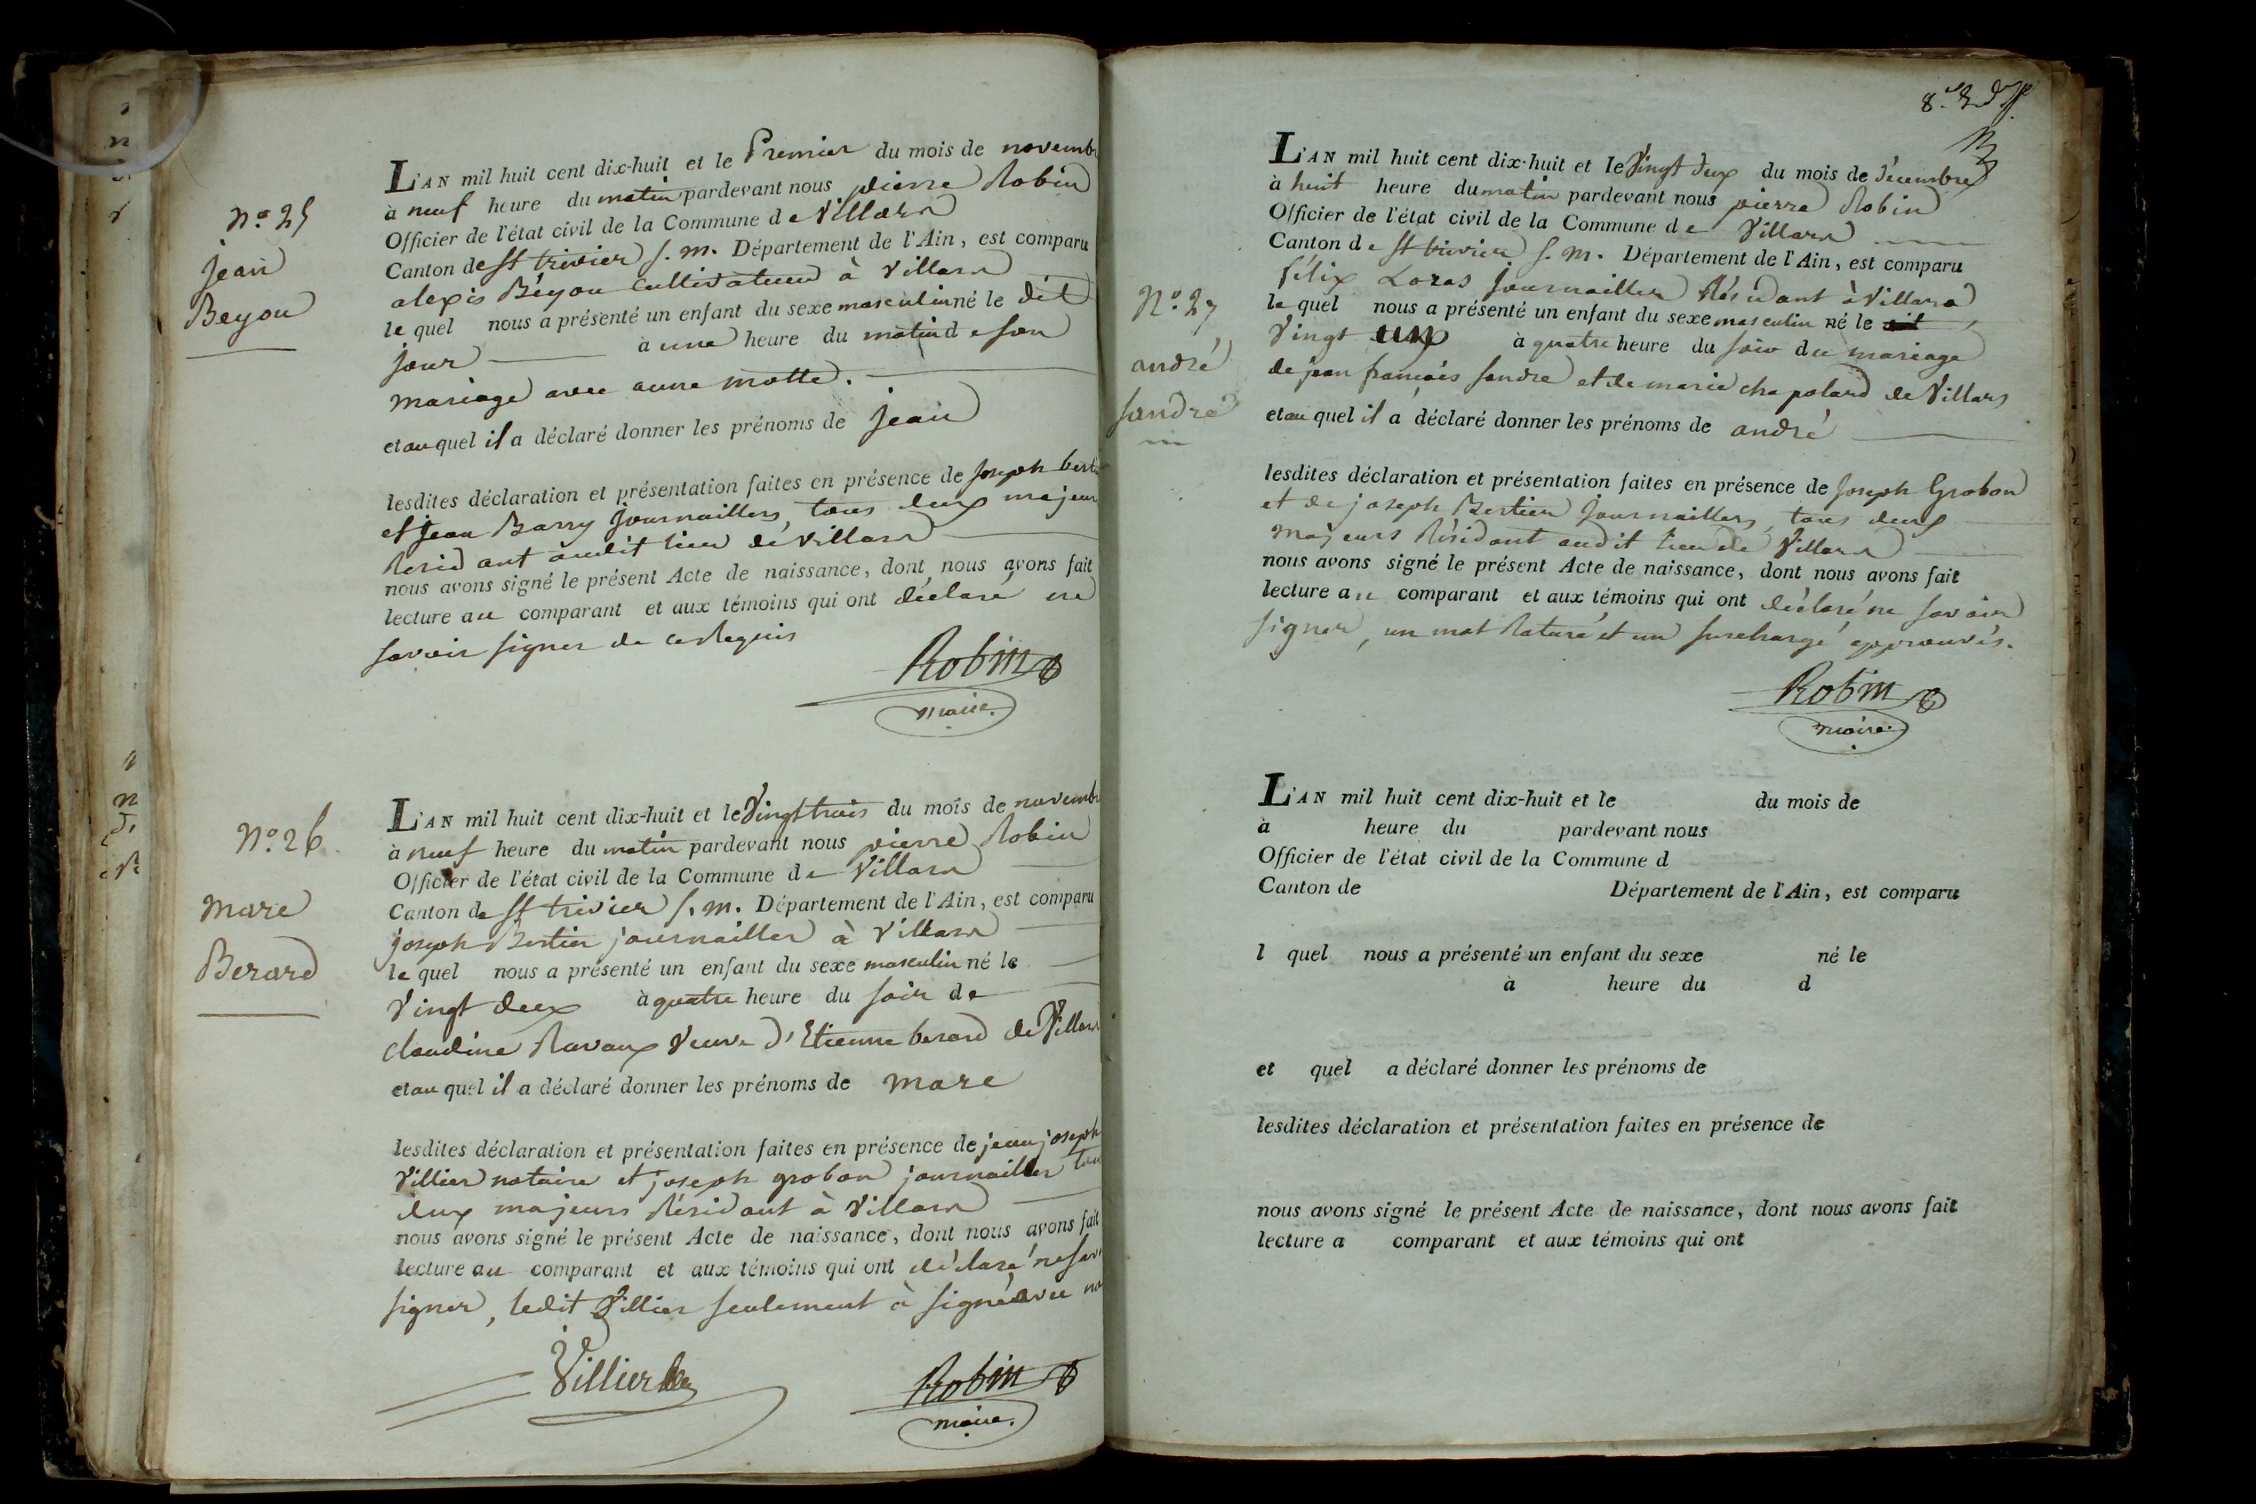 N.° 25
Jean
Beyou
L'AN mil huit cent dix-huit et le Premier du mois de novembr
à neuf heure du matin pardevant nous pierre Robin
Officier de l'état civil de la Commune de Villars
Canton de St trivier s. m. Département de l'Ain, est comparu
alexis Béyou Cultivateur à Villars
le quel nous a présenté un enfant du sexe masculin né le dit
jour à une heure du matin de son
mariage avec anne motte.
et au quel il a déclaré donner les prénoms de Jean
lesdites déclaration et présentation faites en présence de Joseph berti
et jean Barry journaillers, tous deux majeur
Résidant audit lieu de villars
nous avons signé le présent Acte de naissance, dont nous avons fait
lecture au comparant et aux témoins qui ont déclaré ne
savoir signer de ce Requis
Robin
maire.
N.° 26
marc
Berard
L'AN mil huit cent dix-huit et le Vingt trois du mois de novembr
à neuf heure du matin pardevant nous pierre Robin
Officier de l'état civil de la Commune de Villars
Canton de St trivier s. m. Département de l'Ain, est comparu
joseph Bertier journailler à Villars
le quel nous a présenté un enfant du sexe masculin né le
Vingt deux à quatre heure du soir de
Claudine Ravaux Veuve d'Etienne berard de Villars
et au quel il a déclaré donner les prénoms de marc
lesdites déclaration et présentation faites en présence de jean joseph
Villier notaire et joseph grobon journailler tou
deux majeurs Résidant à Villars
nous avons signé le présent Acte de naissance, dont nous avons fait
lecture au comparant et aux témoins qui ont déclaré ne sav
signer, ledit Villier seulement à signé avec no
Villier
Robin
maire.
N.° 27
andré
sandre
L'AN mil huit cent dix-huit et le Vingt deux du mois de décembre
à huit heure du matin pardevant nous pierre Robin
Officier de l'état civil de la Commune de Villars
Canton de St trivier s. m. Département de l'Ain, est comparu
félix Loras journailler Résidant à Villars
le quel nous a présenté un enfant du sexe masculin né le
Vingt un à quatre heure du soir du mariage
de jean françois sandre et de marie chapolard de Villars
et au quel il a déclaré donner les prénoms de andré
lesdites déclaration et présentation faites en présence de Joseph Grobon
et de joseph Bertier journaillers, tous deux
majeurs Résidant audit lieu de Villars
nous avons signé le présent Acte de naissance, dont nous avons fait
lecture au comparant et aux témoins qui ont déclaré ne savoir
signer, un mot Raturé et un surchargé approuvés.
Robin
maire
L'AN mil huit cent dix-huit et le du mois de
à heure du pardevant nous
Officier de l'état civil de la Commune d
Canton de Département de l'Ain, est comparu
l quel nous a présenté un enfant du sexe né le
à heure du d
et quel a déclaré donner les prénoms de
lesdites déclaration et présentation faites en présence de
nous avons signé le présent Acte de naissance, dont nous avons fait
lecture a comparant et aux témoins qui ont